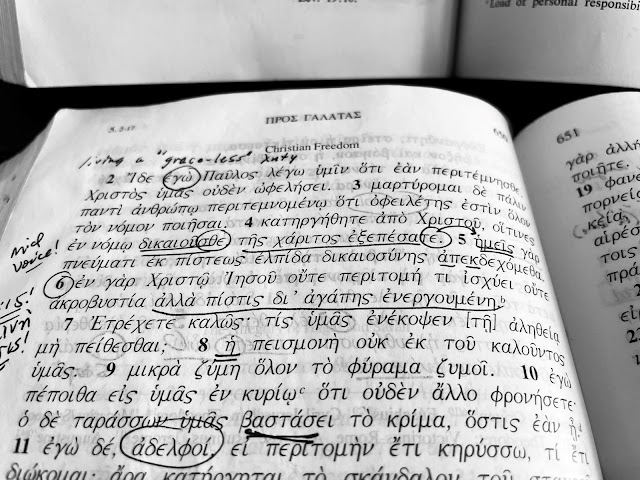 Lev. 19:18.
Load of personal responsibi
5. 2-17
ΠΡΟΣ ΓΑΛΑΤΑΣ
650
living a "grace-less" xnty
Christian Freedom
2 Ἴδε ἐγὼ Παῦλος λέγω ὑμῖν ὅτι ἐὰν περιτέμνησθε,
Χριστὸς ὑμᾶς οὐδὲν ὠφελήσει. 3 μαρτύρομαι δὲ πάλιν
παντὶ ἀνθρώπῳ περιτεμνομένῳ ὅτι ὀφειλέτης ἐστὶν ὅλον
τὸν νόμον ποιῆσαι. 4 κατηργήθητε ἀπὸ Χριστοῦ, οἵτινες
ἐν νόμῳ δικαιοῦσθε, τῆς χάριτος ἐξεπέσατε. 5 ἡμεῖς γὰρ
πνεύματι ἐκ πίστεως ἐλπίδα δικαιοσύνης ἀπεκδεχόμεθα.
6 ἐν γὰρ Χριστῷ Ἰησοῦ οὔτε περιτομή τι ἰσχύει οὔτε
ἀκροβυστία ἀλλὰ πίστις δι' ἀγάπης ἐνεργουμένη.ᵇ
7 Ἐτρέχετε καλῶς· τίς ὑμᾶς ἐνέκοψεν [τῇ] ἀληθείᾳ
μὴ πείθεσθαι; 8 ἡ πεισμονὴ οὐκ ἐκ τοῦ καλοῦντος
ὑμᾶς. 9 μικρὰ ζύμη ὅλον τὸ φύραμα ζυμοῖ. 10 ἐγὼ
πέποιθα εἰς ὑμᾶς ἐν κυρίῳᶜ ὅτι οὐδὲν ἄλλο φρονήσετε·
ὁ δὲ ταράσσων ὑμᾶς βαστάσει τὸ κρίμα, ὅστις ἐὰν ᾖ.ᵈ
11 ἐγὼ δέ, ἀδελφοί, εἰ περιτομὴν ἔτι κηρύσσω, τί ἔτι
διώκομαι; ἄρα κατήργηται τὸ σκάνδαλον τοῦ
mid
voice!
651
γὰρ ἀλλή
ποιῆτε.
19 φανε
πορνεία
αἱρέσ
τοις
πρά
εἰ